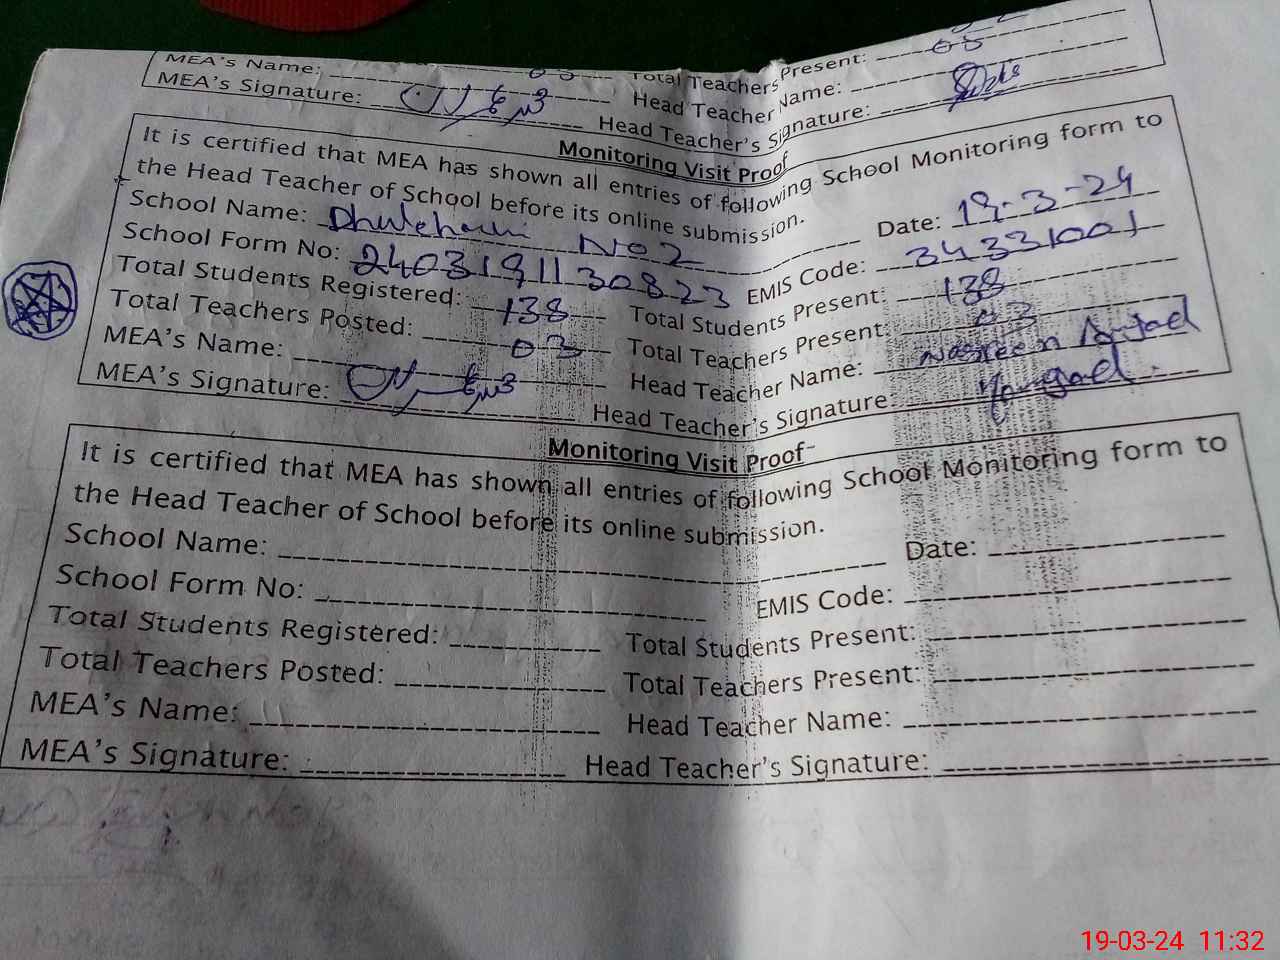 MEA's Name: 03 Total Teachers Present: 03
MEA's Signature: Head Teacher Name:
Head Teacher's Signature:
Monitoring Visit Proof
It is certified that MEA has shown all entries of following School Monitoring form to
the Head Teacher of School before its online submission.
School Name: No 2 Date: 19-3-24
School Form No: 2403191130823 EMIS Code: 34331001
Total Students Registered: 138 Total Students Present: 138
Total Teachers Posted: 03 Total Teachers Present: 03
MEA's Name: Head Teacher Name: Nasreen Amjad
MEA's Signature: Head Teacher's Signature:
Monitoring Visit Proof
It is certified that MEA has shown all entries of following School Monitoring form to
the Head Teacher of School before its online submission.
School Name: Date:
School Form No: EMIS Code:
Total Students Registered: Total Students Present:
Total Teachers Posted: Total Teachers Present:
MEA's Name: Head Teacher Name:
MEA's Signature: Head Teacher's Signature:
19-03-24 11:32